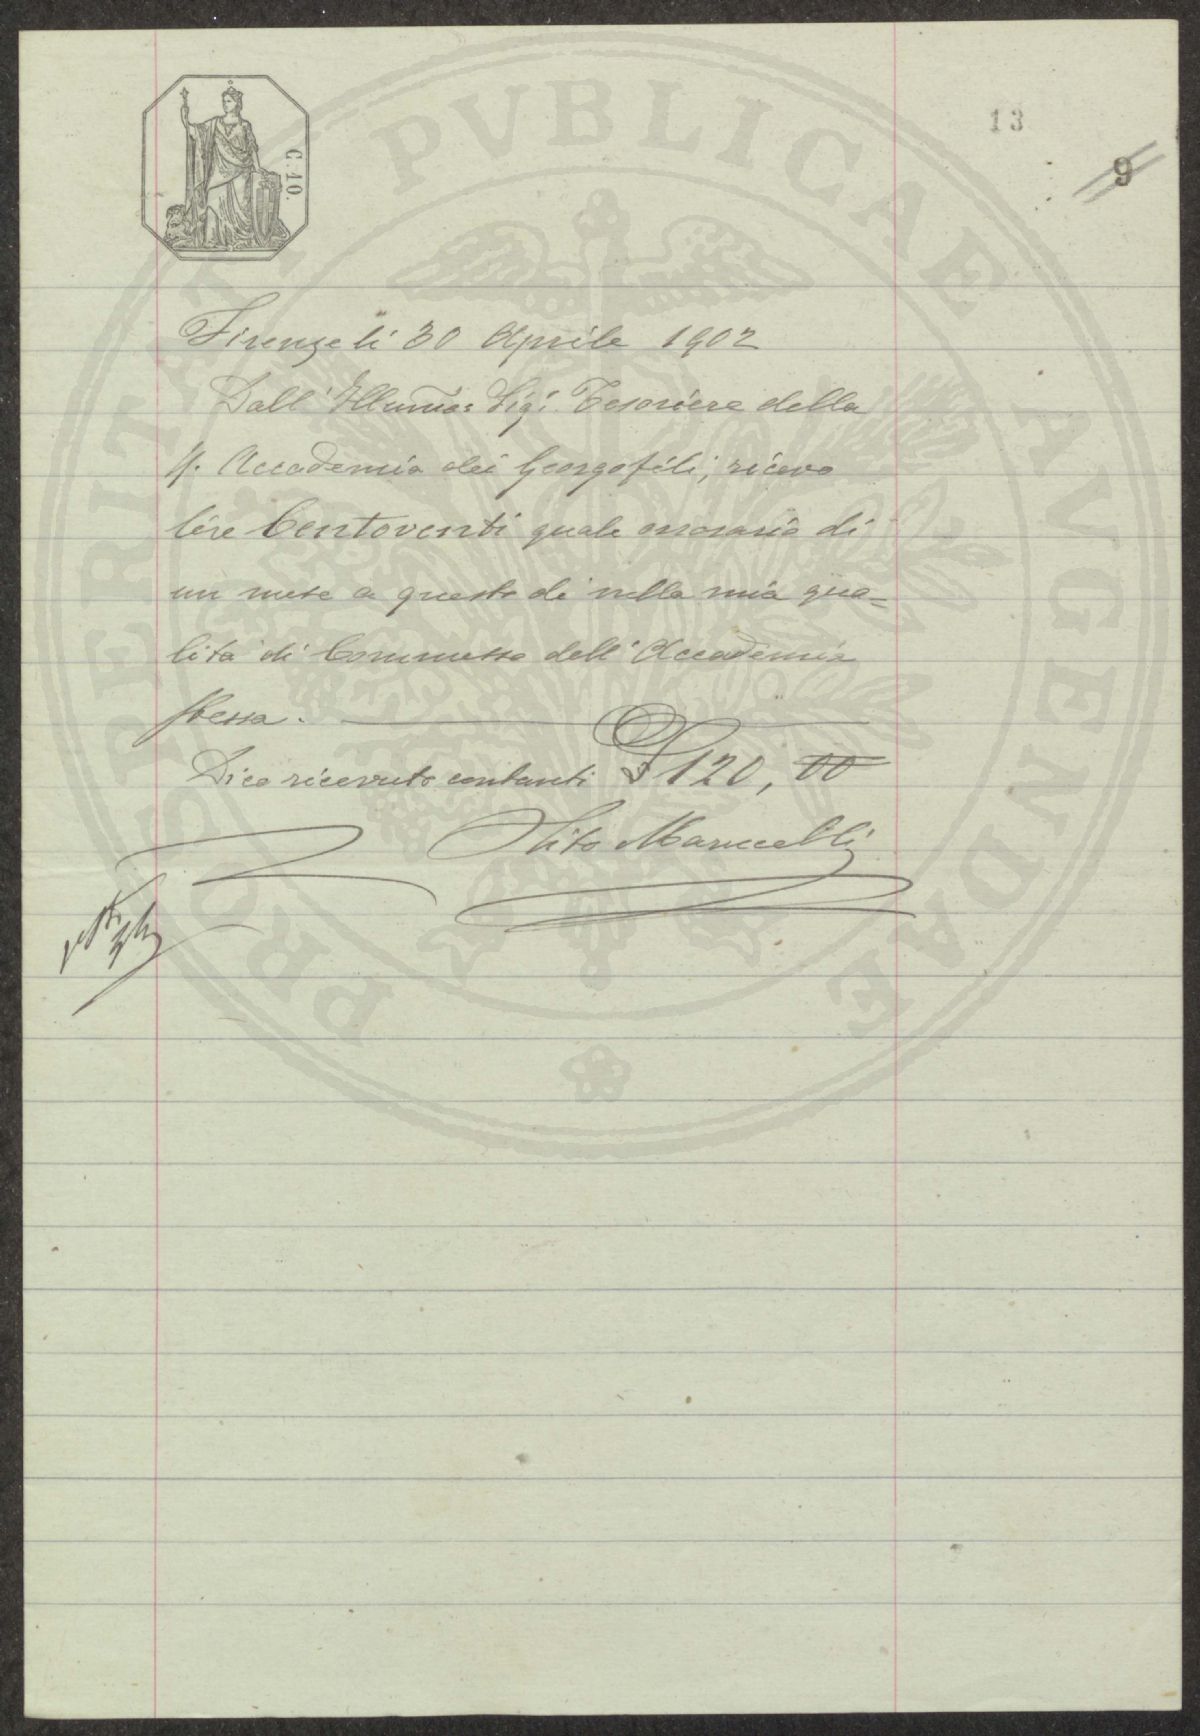 C. 10.
13
9
PROSPERITATI PVBLICAE AVGENDAE
Firenze li 30 Aprile 1902
Dall' Illumo: Sigr. Tesoriere della
R. Accademia dei Georgofili, ricevo
lire Centoventi quale onorario di
un mese a questo dì nella mia qua=
lità di Commesso dell' Accademia
stessa.
Dico ricevuto contanti £ 120, 00
Tito Marucelli